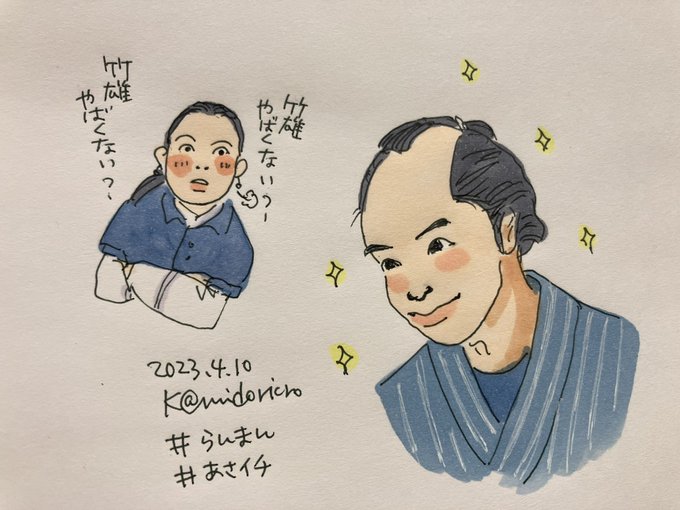 竹雄
やばくない?、
竹雄
やばくない?ー
2023.4.10
K@midoricro
#らんまん
#あさイチ